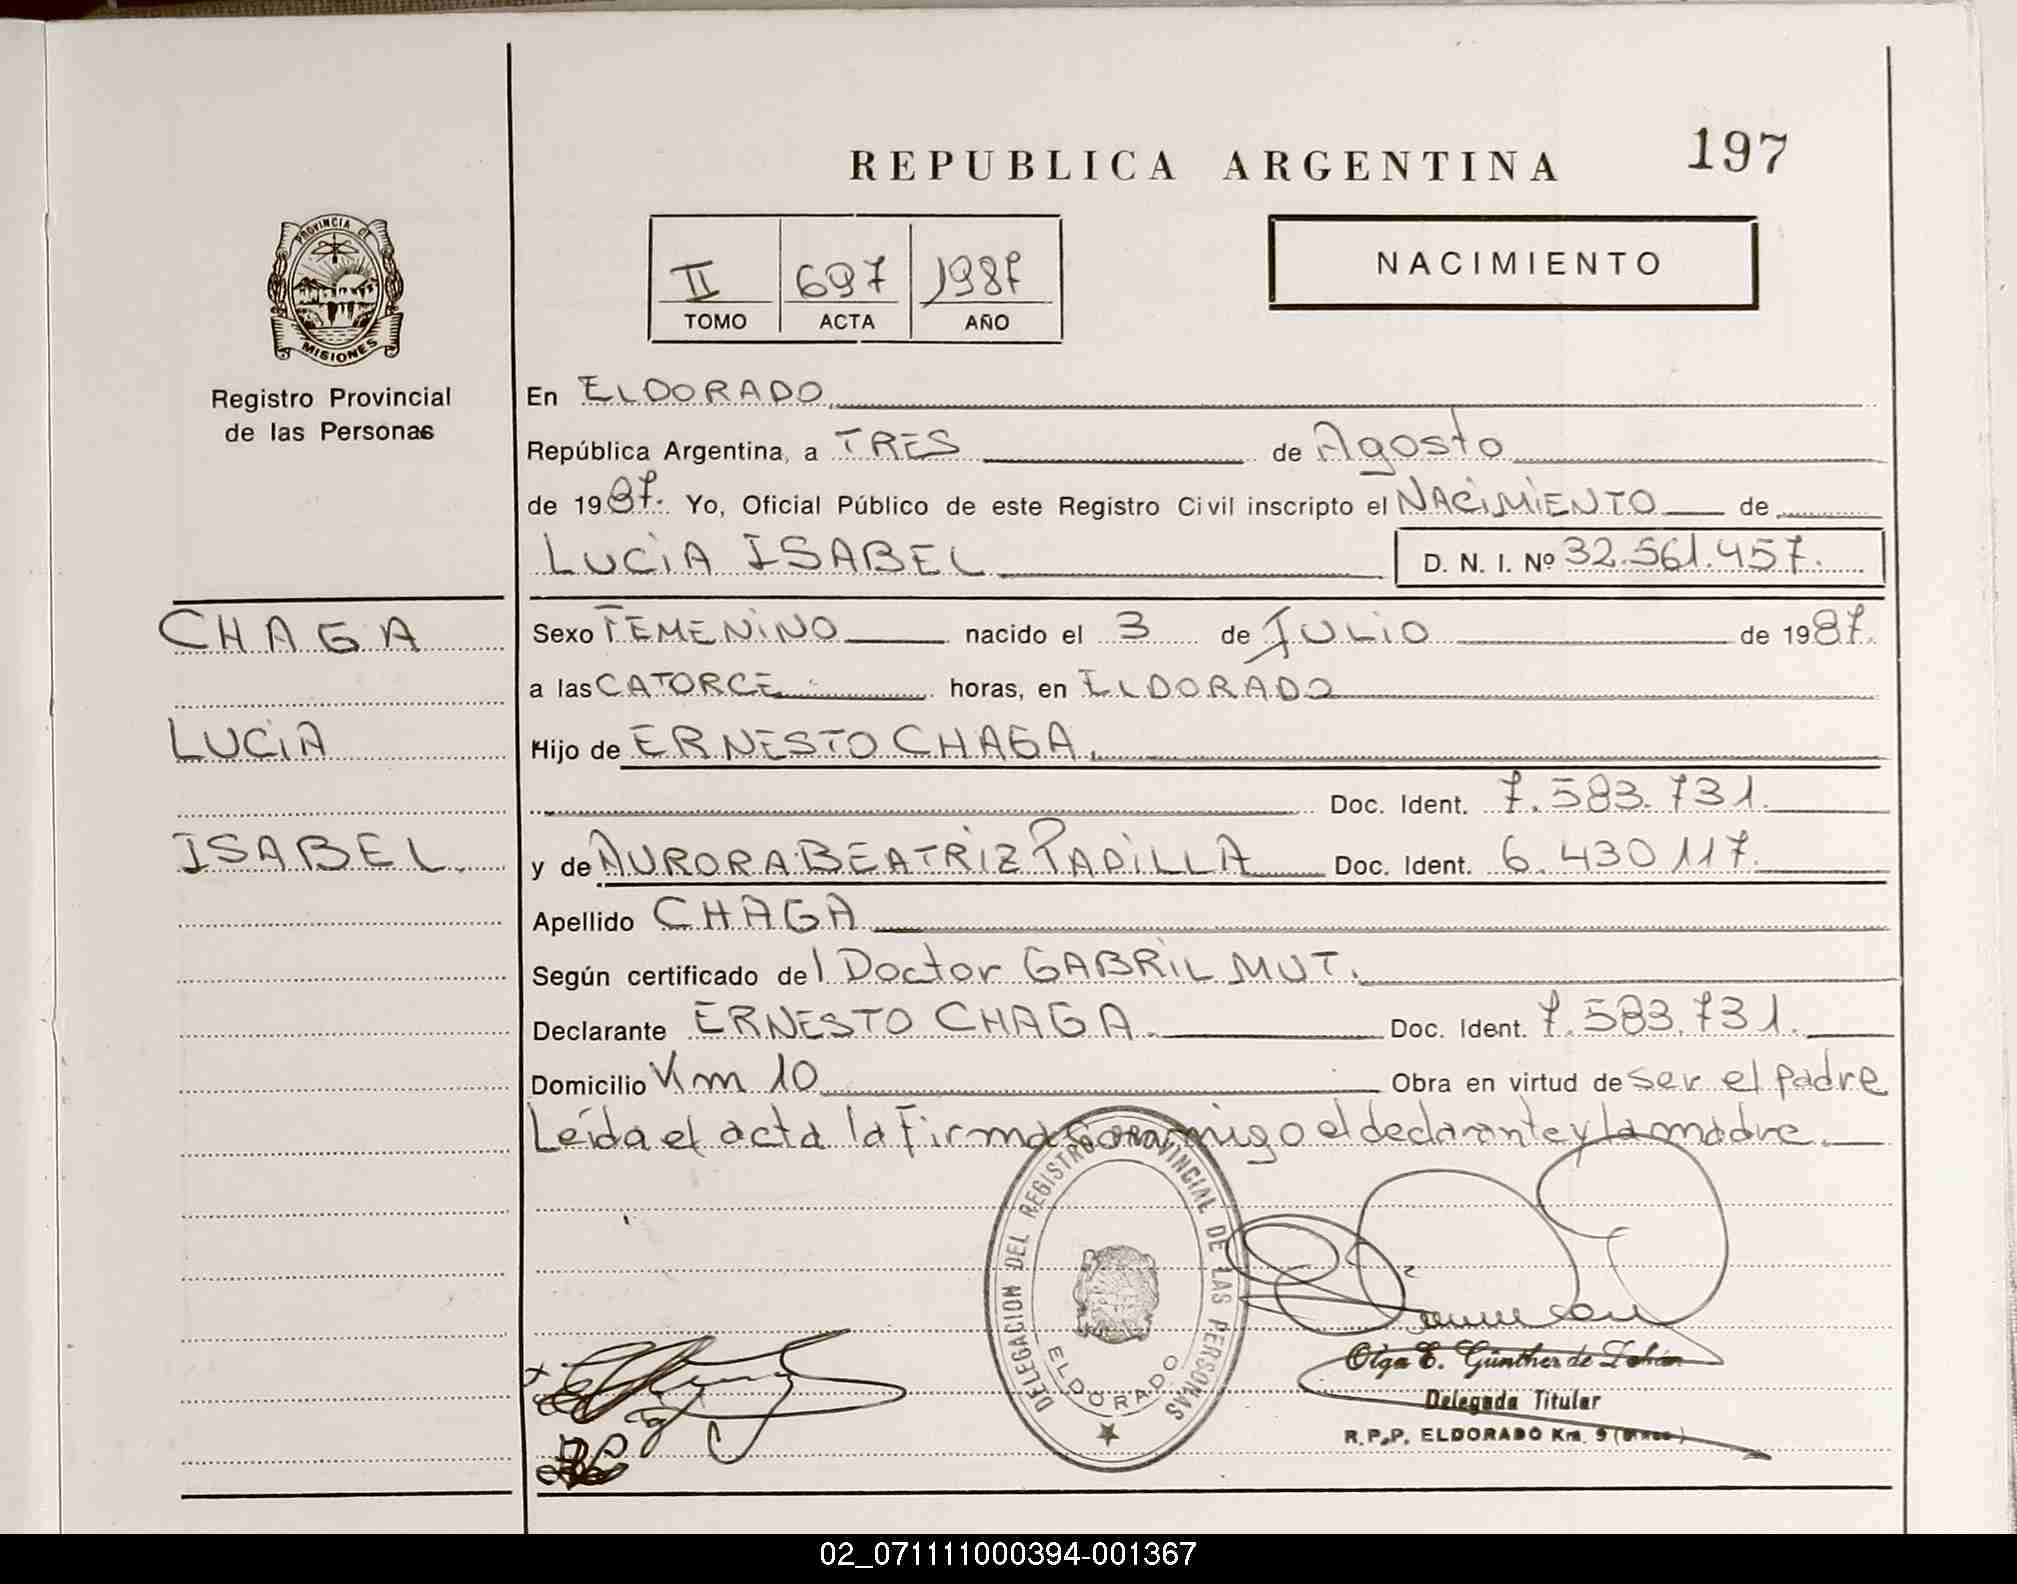 REPUBLICA ARGENTINA
197
PROVINCIA DE
MISIONES
Registro Provincial
de las Personas
II 697 1987
TOMO ACTA AÑO
NACIMIENTO
En ELDORADO
República Argentina, a TRES de Agosto
de 1987. Yo, Oficial Público de este Registro Civil inscripto el NACIMIENTO de
LUCIA ISABEL D. N. I. Nº 32.561.457.
CHAGA
LUCIA
ISABEL
Sexo FEMENINO nacido el 3 de JULIO de 1987.
a las CATORCE horas, en ELDORADO
Hijo de ERNESTO CHAGA.
Doc. Ident. 7.583.731.
y de AURORA BEATRIZ PADILLA Doc. Ident. 6.430117.
Apellido CHAGA
Según certificado del Doctor GABRIL MUT.
Declarante ERNESTO CHAGA. Doc. Ident. 7.583.731.
Domicilio Km 10 Obra en virtud de ser el padre
Leída el acta la Firma Conmigo el declarante y la madre.
DELEGACION DEL REGISTRO PROVINCIAL DE LAS PERSONAS
ELDORADO
Olga E. Günther de
Delegada Titular
R.P.P. ELDORADO Km. 9
02_071111000394-001367